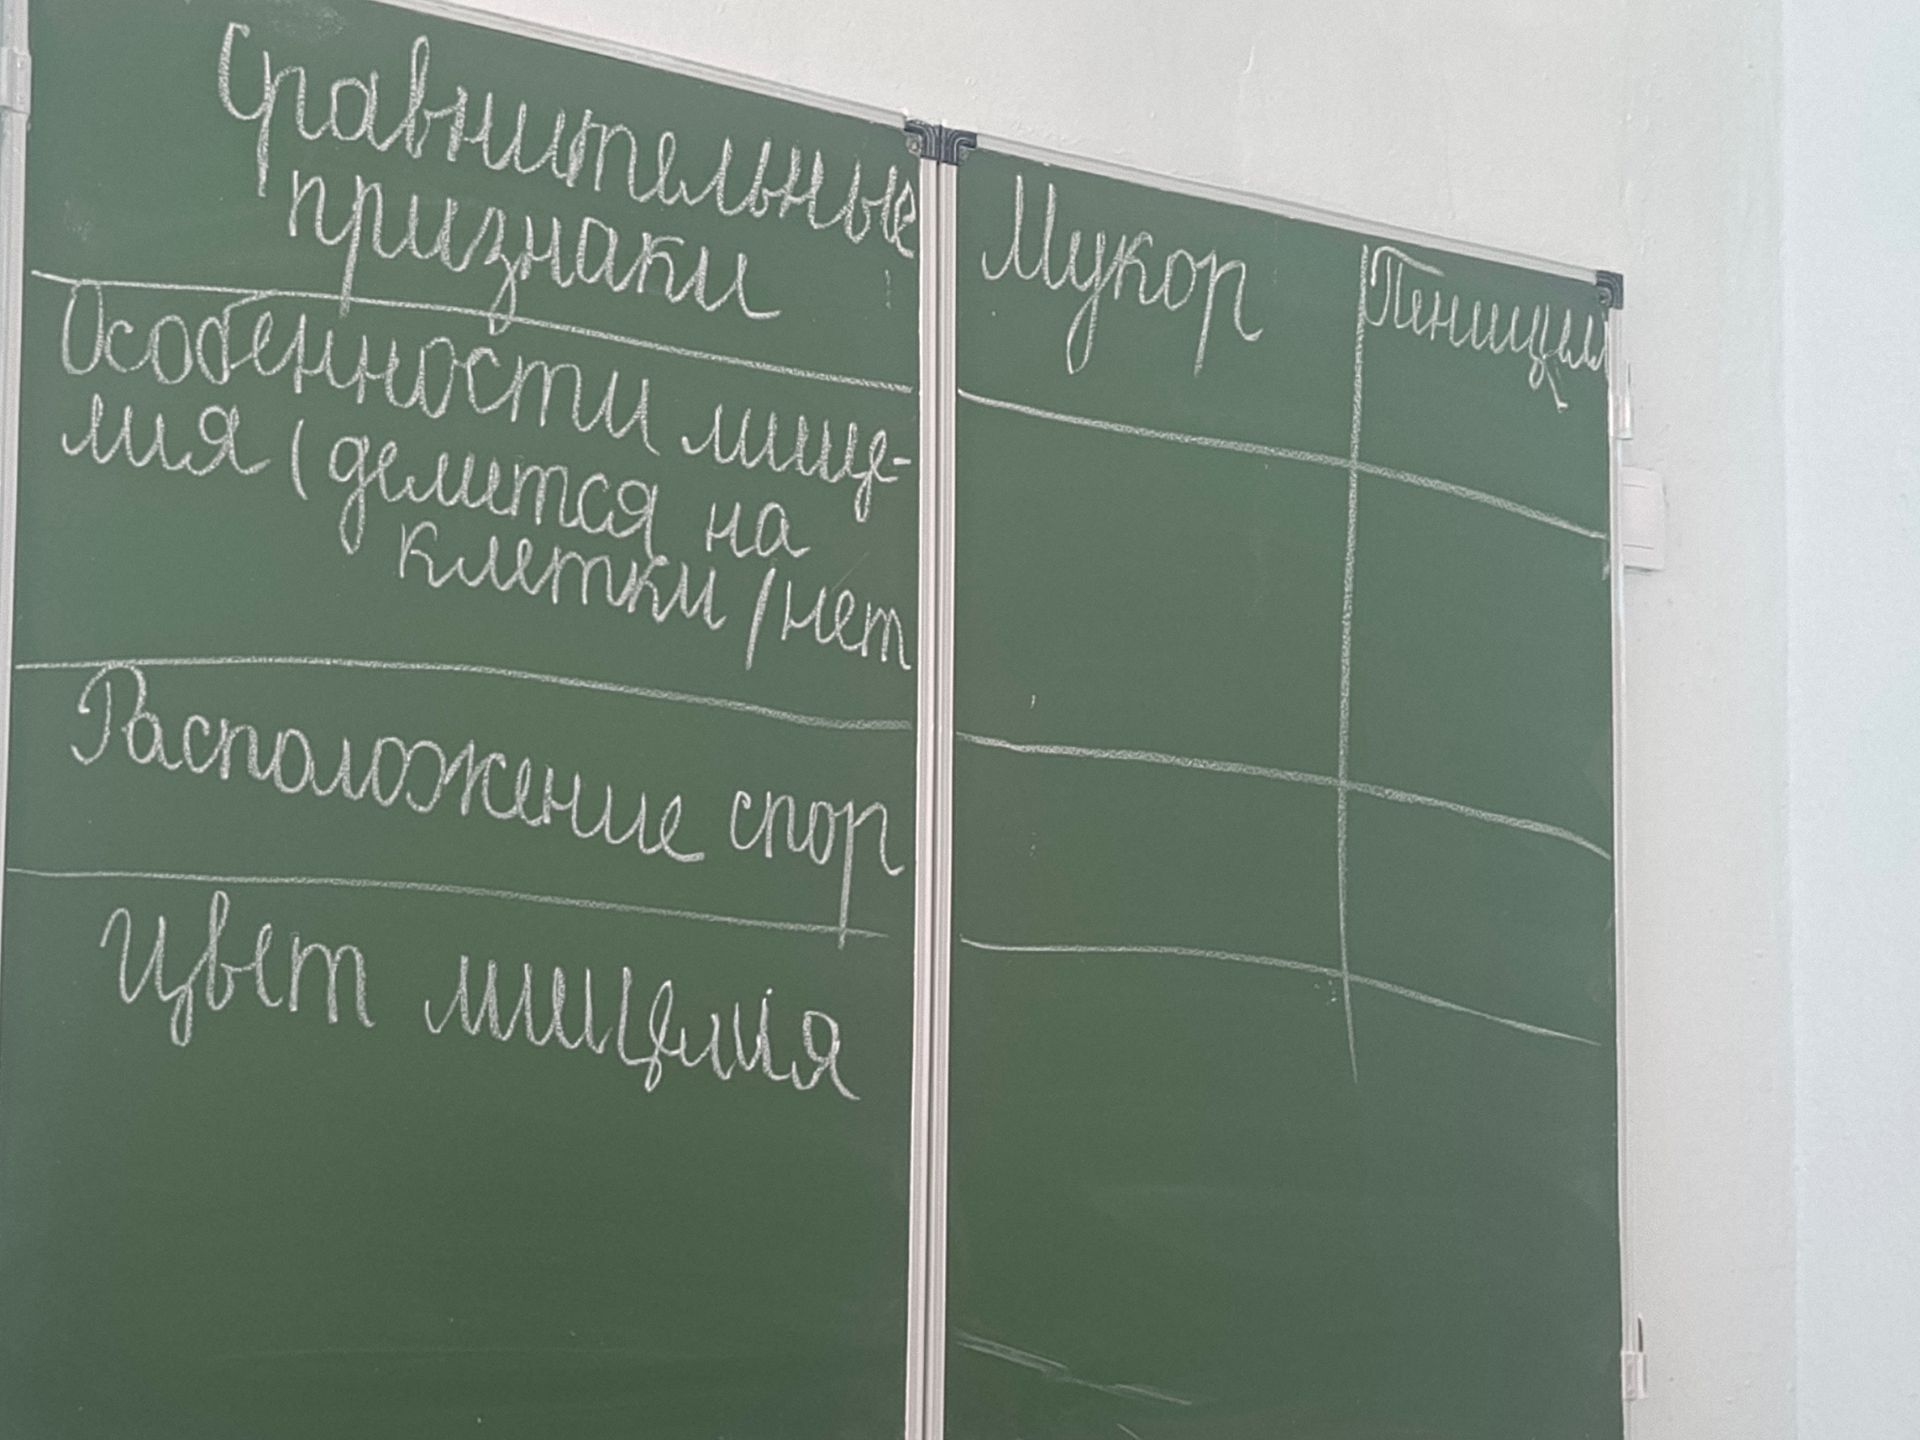 Сравнительные
признаки
Мукор
Пеницилл
Особенности мице-
лия (делится на
клетки/нет
Расположение спор
Цвет мицелия